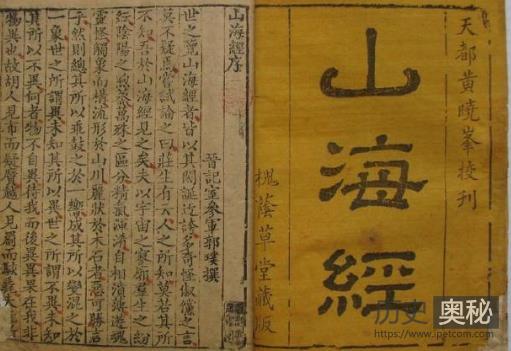 天都黃曉峯校刊
山海經
槐蔭草堂藏版
山海經序
晉記室參軍郭璞撰
世之覽山海經者皆以其閎誕迂誇多奇怪俶儻之言
莫不疑焉嘗試論之曰莊生有云人之所知莫若其所
不知吾於山海經見之矣夫以宇宙之寥廓羣生之紛
紜陰陽之煦蒸萬殊之區分精氣渾淆自相濆薄遊魂
靈怪觸象而構流形於山川麗狀於木石者惡可勝言
乎然則總其所以乖鼓之於一響成其所以變混之於
一象世之所謂異未知其所以異世之所謂不異未知
其所以不異何者物不自異待我而後異異果在我非
物異也故胡人見布而疑黂越人見罽而駭毳夫
历史奥秘
https://www.ipetcom.com